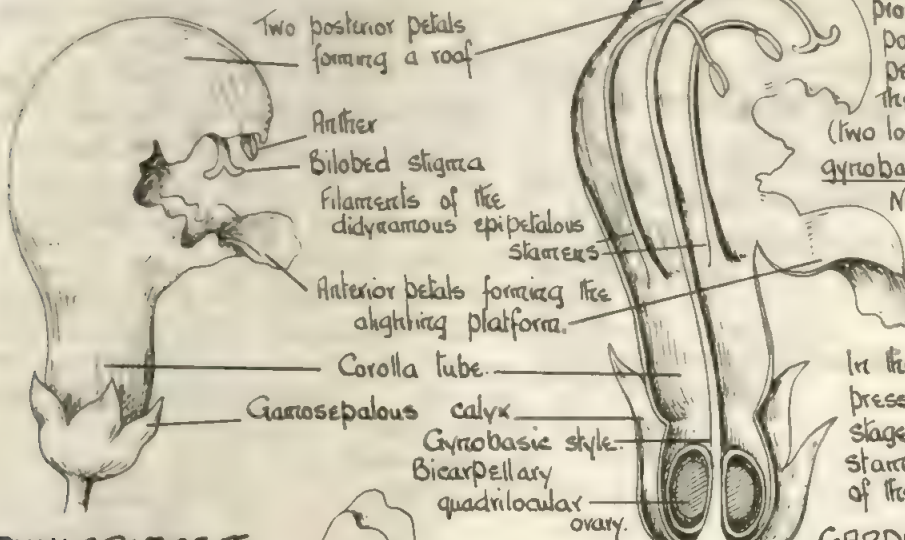 Two posterior petals
forming a roof
Anther
Bilobed stigma
Filaments of the
didynamous epipetalous
stamens
Anterior petals forming the
alighting platform.
Corolla tube.
Gamosepalous calyx
Gynobasic style.
Bicarpellary
quadrilocular
ovary.
pro
po
pe
the
(two lo
gynoba
N
In th
press
stage
stam
of the